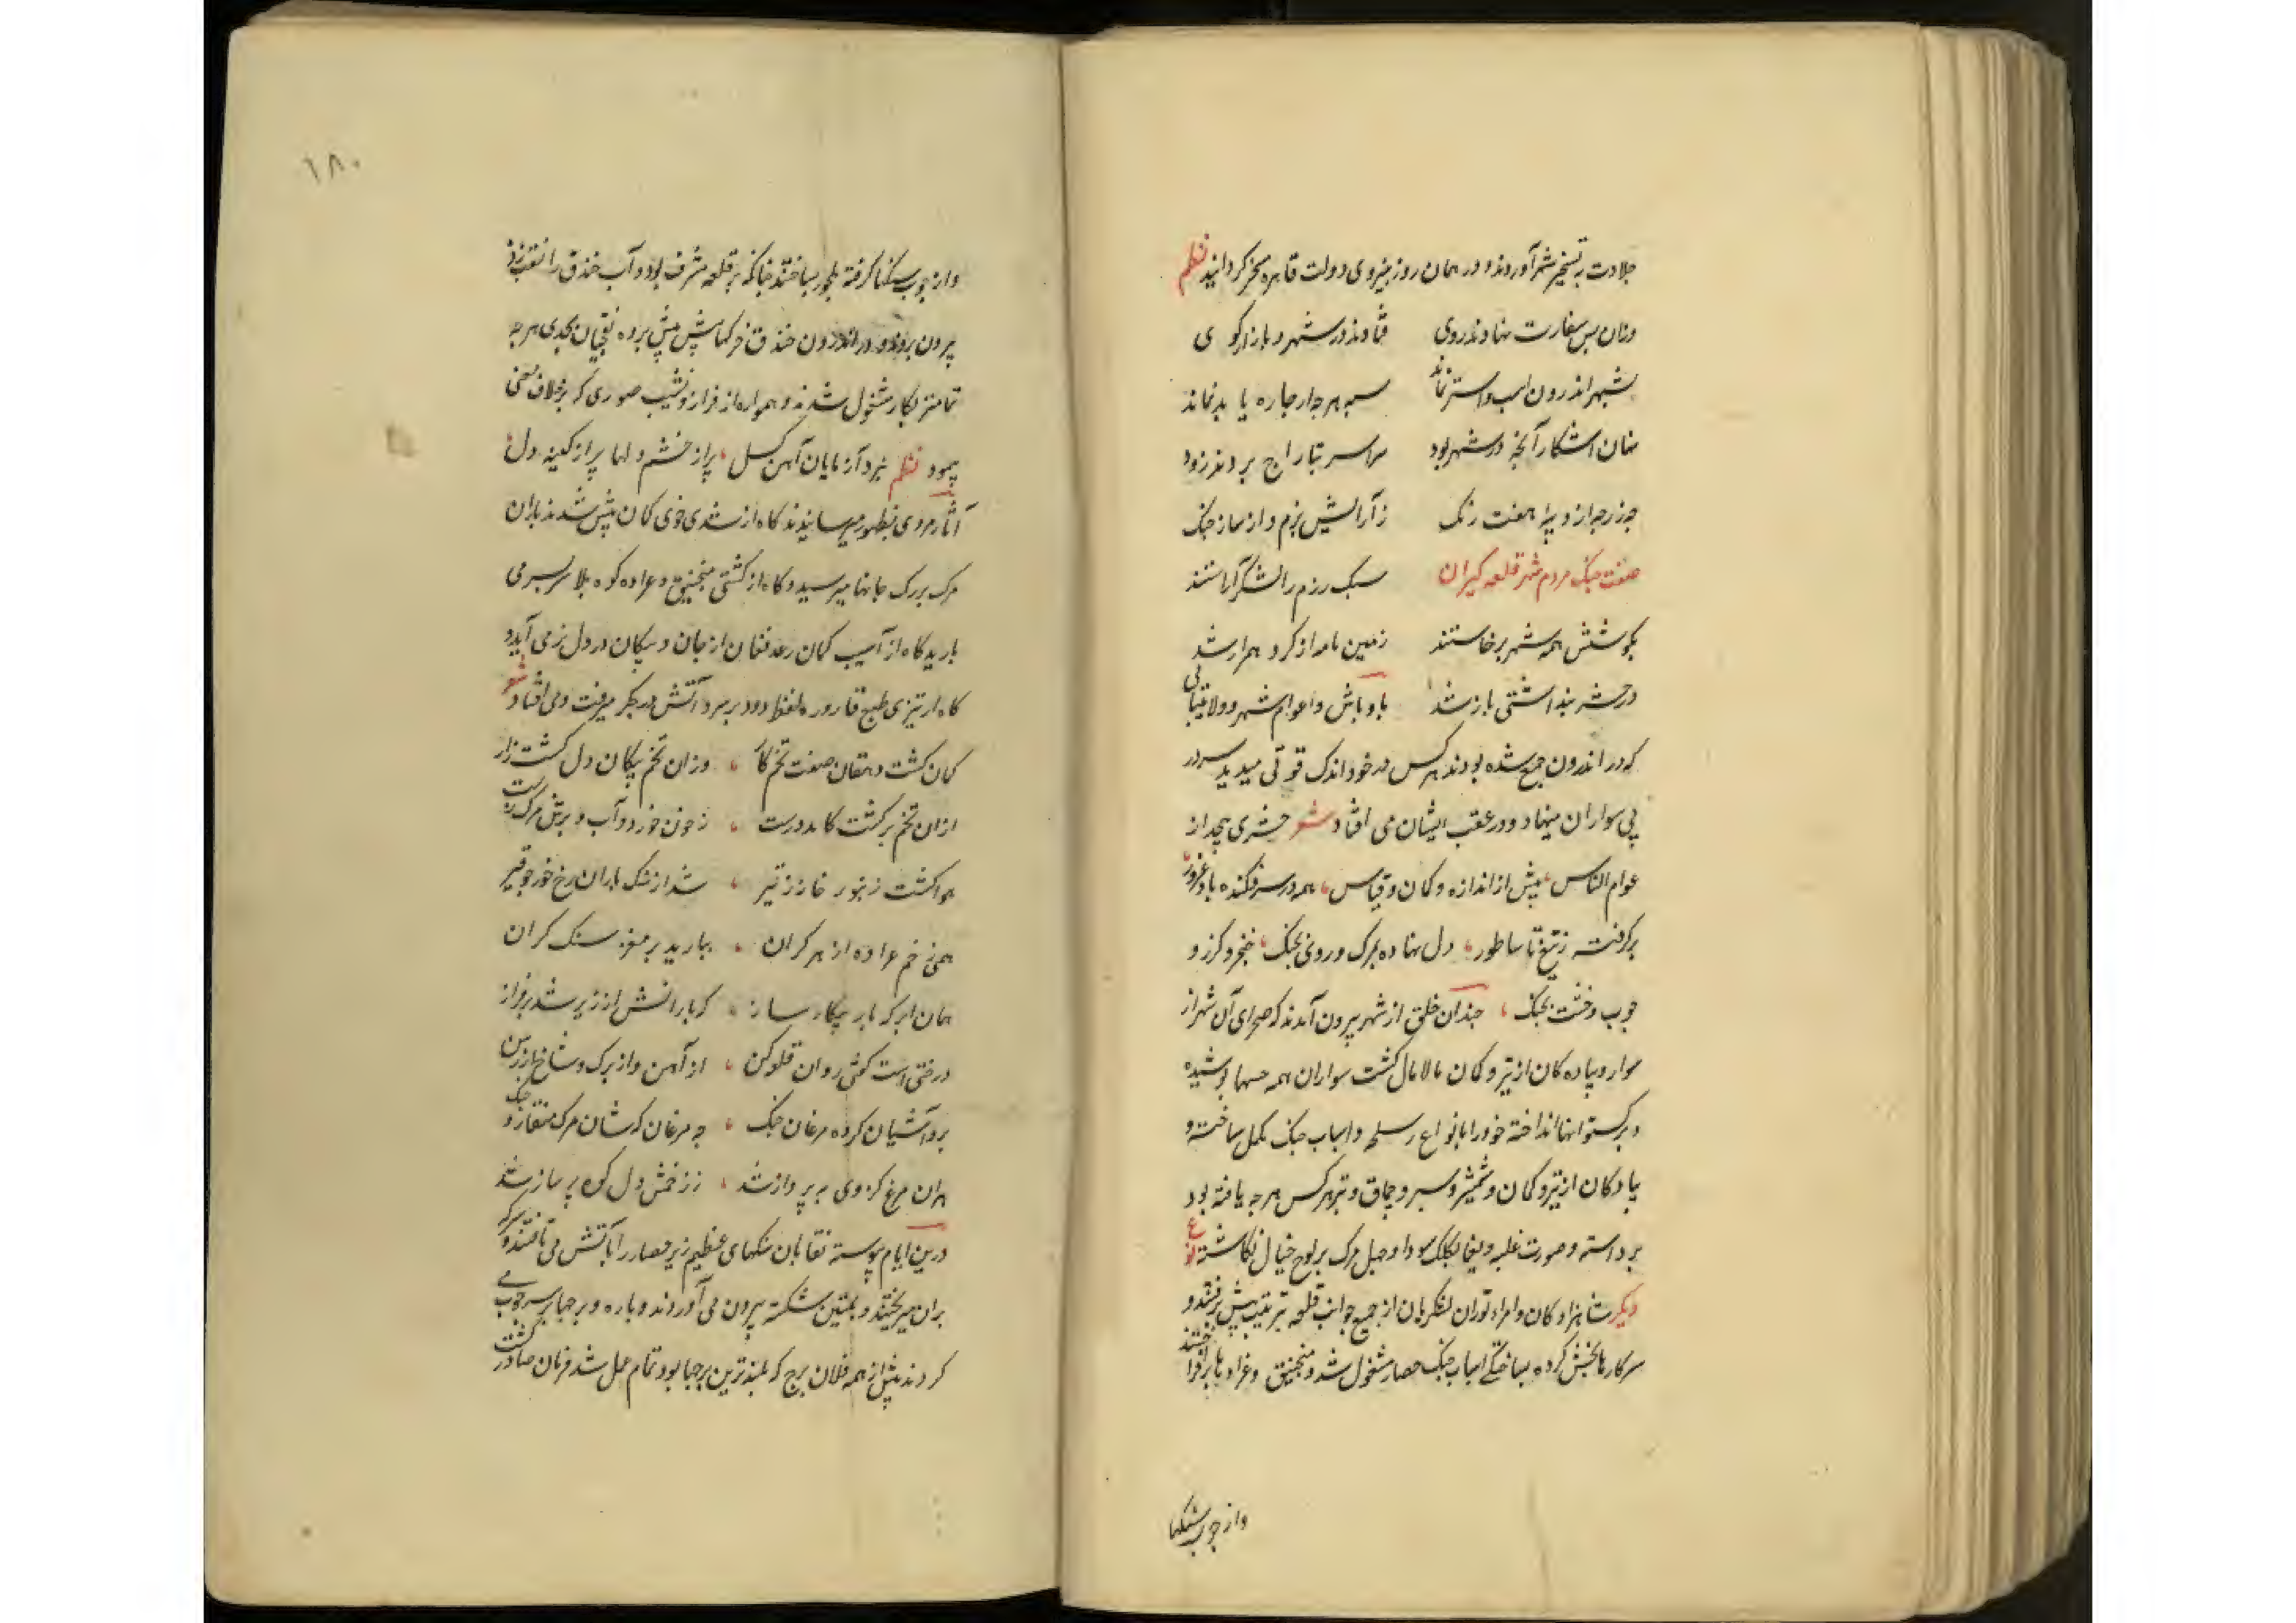 جلادت به تسخیر شهر آوردند و در همان روز بنیروی دولت قاهره مسخر کردانیدند نظم
وزان پس بغارت نهادند روی فتادند در شهر و بازار کوی
بشهر اندرون اسب و استر نماند
نهان آشکار آنچه در شهر بود سراسر بتاراج بردند زود
جه زر جه از دیبه هفت رنک ز آرایش بزم و از ساز جنک
صفت جنک مردم شهر قلعه کیران سبک رزم را لشکر آراستند
بکوشش همه شهر برخاستند زمین نامه از کرد
در آشتی باز شد با وباش و اعوام شهر و ولایتها
که در اندرون جمع شده بودند هر کس در خود اندک قوتی میدید سر در
پی سواران مینهاد و در عقب ایشان می افتاد شعر حشری بیحد از
عوام الناس، بیش از اندازه و کمان و قیاس، همه در سر فکنده باد غرور،
برکرفته ز تیغ تا ساطور، دل نهاده بمرک و روی بجنک، خنجر و کرز و
جوب و خشت بجنک، جندان خلق از شهر بیرون آمدند که صحرای آن شهر از
سوار و پیاده کان از تیر و کمان مالامال کشت سواران همه پوشیده
و برکستوانها انداخته خود را بانواع اسلحه و اسباب جنک مکمل ساخته و
پیادکان از تیر و کمان و شمشیر و سپر و جماق و تبر هر کس هر جه یافته بود
برداشته و صورت غلبه و یغما بکلک سودا و جهل مرک بر لوح خیال نکاشته
دیکر شاهزادکان و امراء توران لشکریان از جمیع جوانب قلعه بترتیب پیش رفتند و
سرکارها بخش کرده بساختکی اسباب جنک حصار مشغول شدند و منجنیق و عراده ها برافراختند
واز جوب سنکها
١٨٠
واز جوب و سنکها کرفته ملجور ساختند جنانکه بر قلعه مشرف بود و آب خندق را نقب زده
بیرون بردند و در اندرون خندق خرکها پیش پیش برده نقبجیان بجدی هر جه
تمامتر بکار مشغول شدند و همواره از فراز و نشیب صوری که بر خلاف معنی
بنمود نظم نبرد آزمایان آهن کسل، پر از خشم دلها پر از کینه دل
آثار مردی بظهور میرسانیدند کاه از تندی خوی کمان پیش شدند باران
مرک برک جانها میرسید و کاه از کشتی منجنیق و عراده کوه بلا بر سر می
بارید کاه از آسیب کمان رعد فغان از جان و پیکان در دل نرمی آید و
کاه از تیزی طبع قاروره نفط دود بر سر و آتش در جکر میرفت و می افتاد شعر
کمان کشت دهقان صفت تخم کار، وزان تخم پیکان دل کشت زار
از آن تخم بر کشت کامد درست، ز خون خورد آب و برش مرک رست
هوا کشت زنبور خانه ز تیر، شد از سنک باران رخ خور جو قیر
همی زخم عراده از هر کران، ببارید بر مغز سنک کران
همان ابر کو بار پیکار ساز، که بارانش از زیر شد بر فراز
درختی است کوئی روان قلعه کن، از آهن واز برک و شاخ از رسن
برو آشیان کرده مرغان جنک، جه مرغان کشان مرک منقار و جنک
هر آن مرغ کز وی به پرواز شد، ز زخمش دل کوه پر ساز شد
درین ایام پیوسته نقابان سنکهای عظیم زیر حصار را بآتش می تافتند و سرکه
بر آن میریختند و بمتین شکسته بیرون می آوردند و باره و برجها بر سر جوب می
کردند پیش از همه فلان برج که بلندترین برجها بود تمام عمل شد فرمان صادر کشت